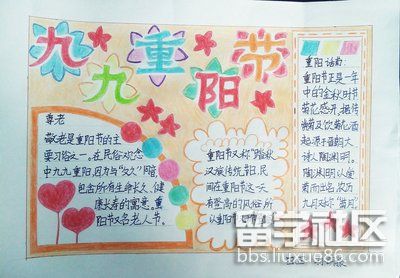 九九重阳节
尊老
敬老是重阳节的主
要习俗之一。在民俗观念
中九九重阳,因为与"久久"同音,
包含所有生命长久、健
康长寿的寓意。重
阳节又名老人节。
重阳节又称"踏秋"
汉族传统节日,民
间在重阳节这一天
有登高的风俗,所
以重阳节又
重阳 诗韵:
重阳节正是一年
中的金秋时节
菊花盛开,据传
赏菊及饮菊花酒
起源于晋朝大
诗人陶渊明。
陶渊明以
菊而出名,农历
九月又称"菊月"
留学社区
bbs.liuxue86.com